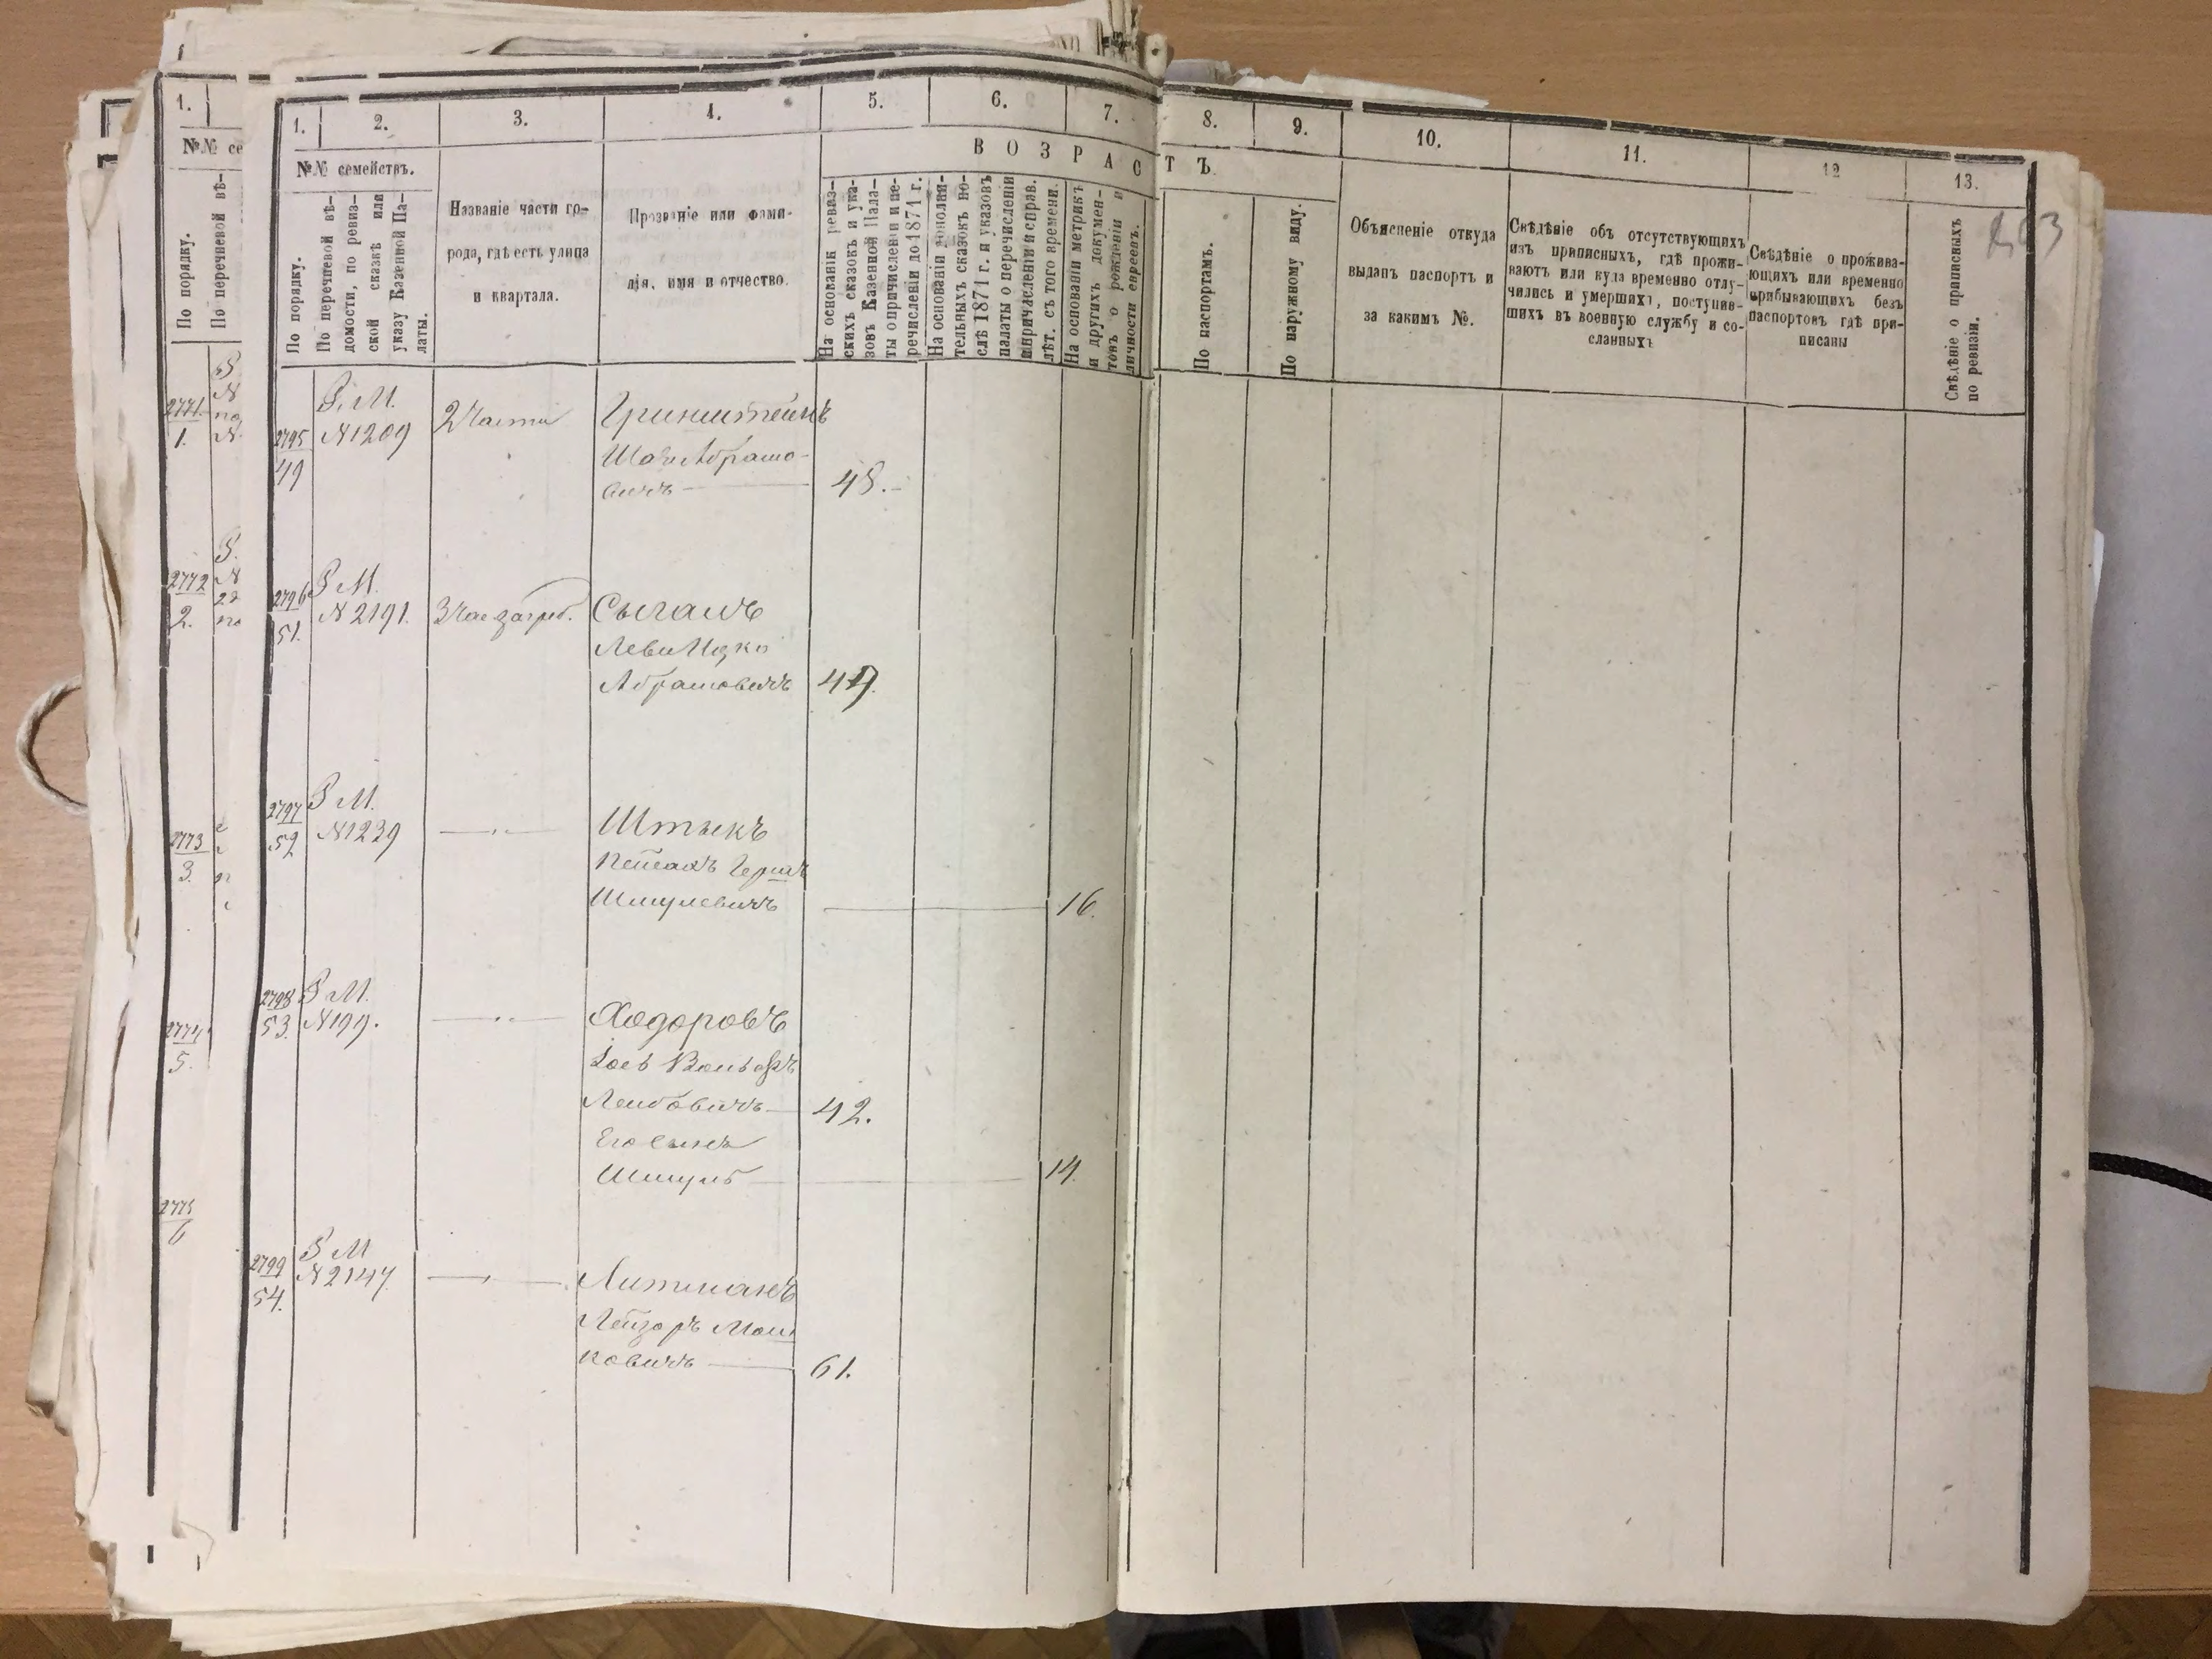 1.
№№ се
По порядку.
По перечневой вѣ-
2771.
1.
2772
2.
2773
3.
2774
5.
2775
6
1.
2.
3.
4.
5.
6.
7.
8.
9.
10.
11.
12
13.
№№ семействъ.
В О З Р А С Т Ъ.
По порядку.
По перечневой вѣ-
домости, по ревиз-
ской сказкѣ или
указу Казенной Па-
латы.
Названіе части го-
рода, гдѣ есть улица
и квартала.
Прозваніе или фами-
лія, имя и отчество.
На основаніи ревиз-
скихъ сказокъ и ука-
зовъ Казенной Пала-
ты о причислени и пе-
речислени до 1871 г.
На основаніи дополни-
тельныхъ сказокъ по-
слѣ 1871 г. и указовъ
палаты о перечислени
и причислени и справ.
лѣт. съ того времени.
На основаніи метрикъ
и другихъ докумен-
товъ о рожденіи и
личности евреевъ.
По паспортамъ.
По наружному виду.
Объясненіе откуда
выданъ паспортъ и
за какимъ №.
Свѣдѣніе объ отсутствующихъ
изъ приписныхъ, гдѣ прожи-
ваютъ или куда временно отлу-
чились и умершихъ, поступив-
шихъ въ военную службу и со-
сланныхъ
Свѣдѣніе о прожива-
ющихъ или временно
прибывающихъ безъ
паспортовъ гдѣ при-
писаны
Свѣдѣніе о приписныхъ
по ревизіи.
2795
49
Р. М.
№1209
2 Части
Гринштейнъ
Шая Абрамо-
вичъ
48.
2796
51.
Р М.
№2191.
Сыгалъ
Леви Ицко
Абрамовичъ
2797
52
Р М.
№1239
Штыкъ
Пейсахъ Герш
Шмулевичъ
16.
2798
53.
Р М.
№199.
Ходоровъ
Вольфъ
Лейбовичъ
42.
Его сынъ
Шмуль
14.
2799
54.
Р М
№2147.
Литманъ
Лейзоръ Мош
ковичъ
61.